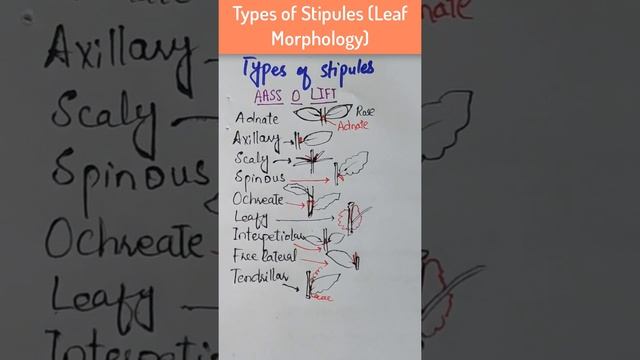 Types of Stipules (Leaf
Morphology)
Types of stipules
AASS O LIFT
Adnate
Rose
Adnate
Axillary
Scaly
Spinous
Ochreate
Leafy
Interpetiolar
Free lateral
Tendrillar
Axillary
Scaly
Spinous
Ochreate
Leafy